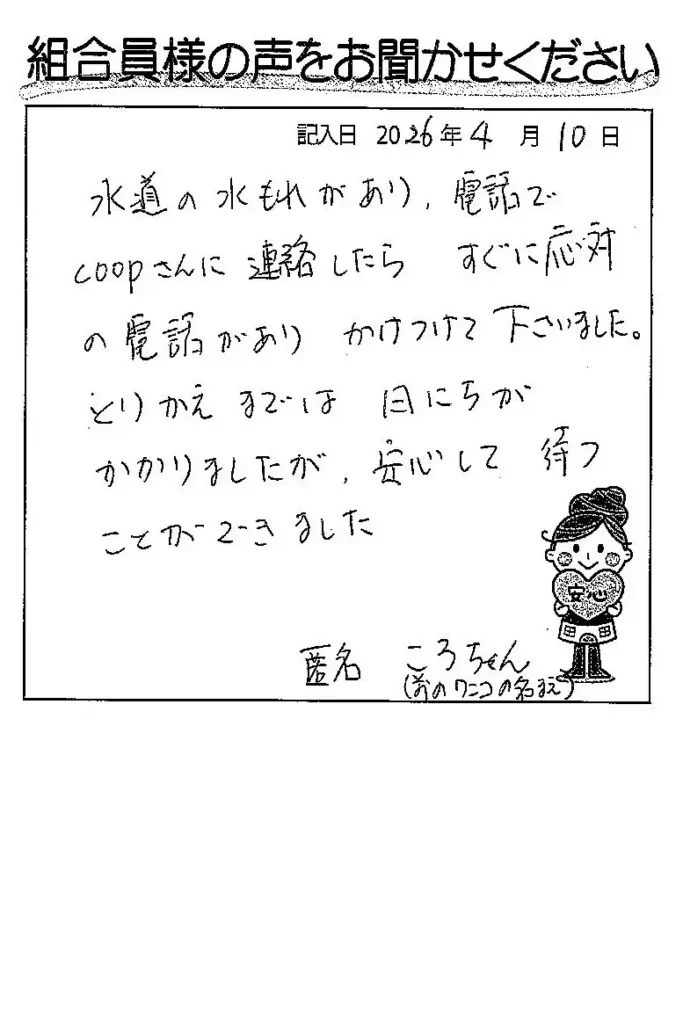 組合員様の声をお聞かせください
記入日 2026年4月10日
水道の水もれがあり、電話で
coopさんに連絡したら すぐに応対
の電話があり かけつけて下さいました。
とりかえまでは 日にちが
かかりましたが、安心して 待つ
ことができました
安心
匿名 ころちゃん
(前のワンコの名まえ)